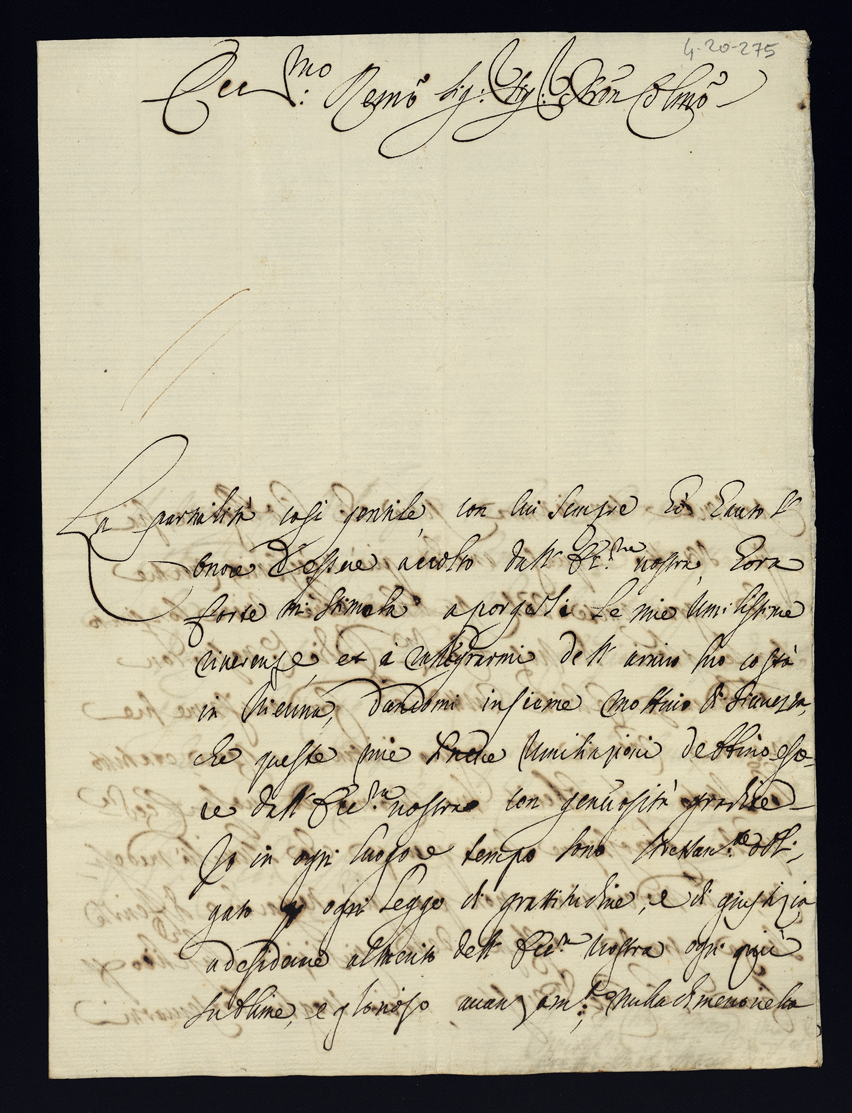 4-20-275
Ecc.mo Remo Sig.r Sig.r Pron Colmo
La parzialità così gentile, con cui sempre hò hauto l'
onore d'essere accolto dall' Ecc.za vostra, hora
forte mi stimola a porgerLi le mie umilissime
riverenze, et à rallegrarmi dell' arrivo suo costà
in Vienna, dandomi insieme mottivo di sicurezza,
che queste mie umiliazioni debbino esse-
re dall' Ecc.za vostra con generosità gradite
Io in ogni luogo e tempo sono strettam.te obli-
gato p ogni legge di grattitudine, e di giustizia
a desiderare al merito dell' Ecc.za vostra ogni più
sublime, e glorioso avanzam.to, nulla di meno nella